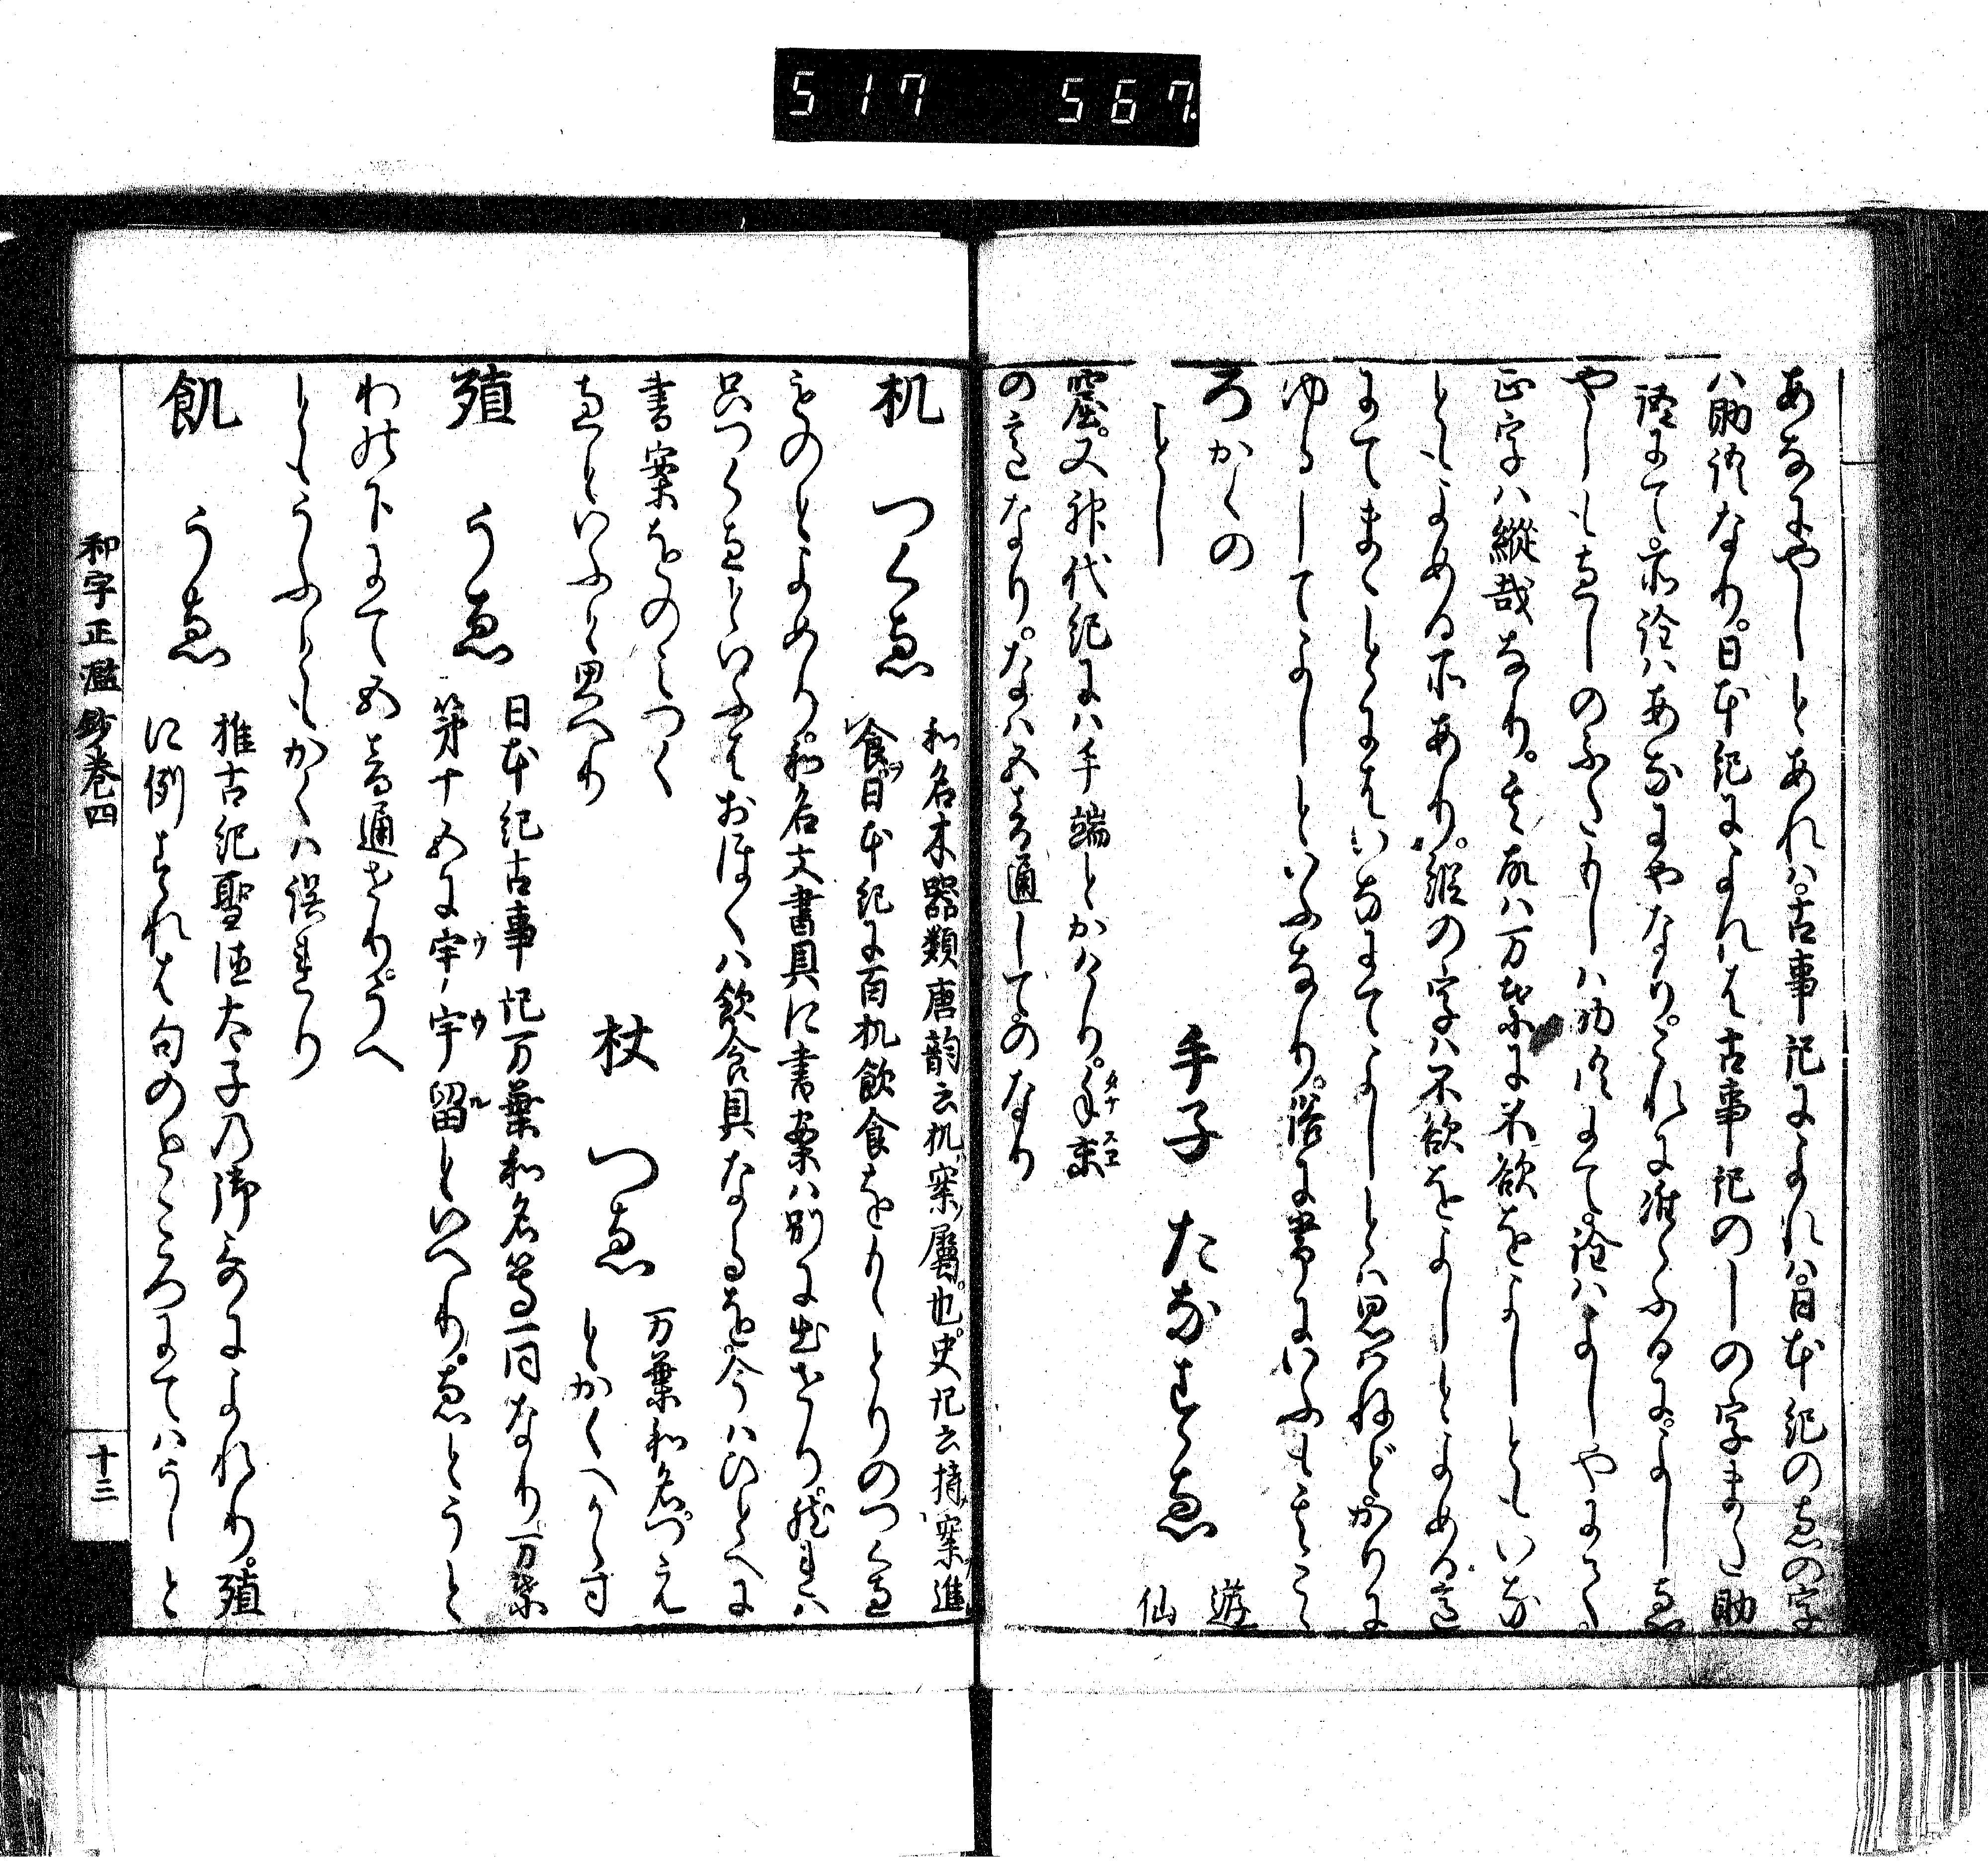 517 567
あなにやしとあれは。古事記によれは。日本紀のゑの字
ハ助語なり。日本紀によれは古事記のしの字また助
語にて。所詮ハあなにやなり。これに准らふるに。よしゑ
やしもゑしのふたよしハ助語にて。詮ハよしやにて
正字ハ縦哉なり。其故ハ万葉に不欲をよしともいな
ともよめる所あり。縦の字ハ不欲をよしとよめる意
にてまことにはいなにてよしとは思はねどかりに
ゆるしてよしといふなり。俗に常にいふも其こゝ
ろかくの
ことし
手子 たなすゑ 遊
仙
窟。又神代紀にハ手端とかけり。手末
タナ スヱ
の意なり。なハ五音通してのなり
机 つくゑ 和名木器類唐韵云机案属也。史記云持案進
食日本紀に百机飲食をもゝとりのつくゑ
ものとよめり。和名文書具に書案ハ別に出せり。然れハ
只つくゑといふはおほくハ飲食具なるを今ハひとへに
書案をのみつく
ゑといふと思へり
杖 つゑ 万葉和名づえ
とかくへからす
殖 うゑ 日本紀古事記万葉和名等一同なり万葉
第十五に宇宇留といへり。ゑとうと
ウウル
わの下にて五音通せり。うへ
ともうふともかくハ誤れり
飢 うゑ 推古紀聖徳太子乃御哥によれり。殖
に例すれは句のところにてハうしと
和字正濫鈔巻四 十三